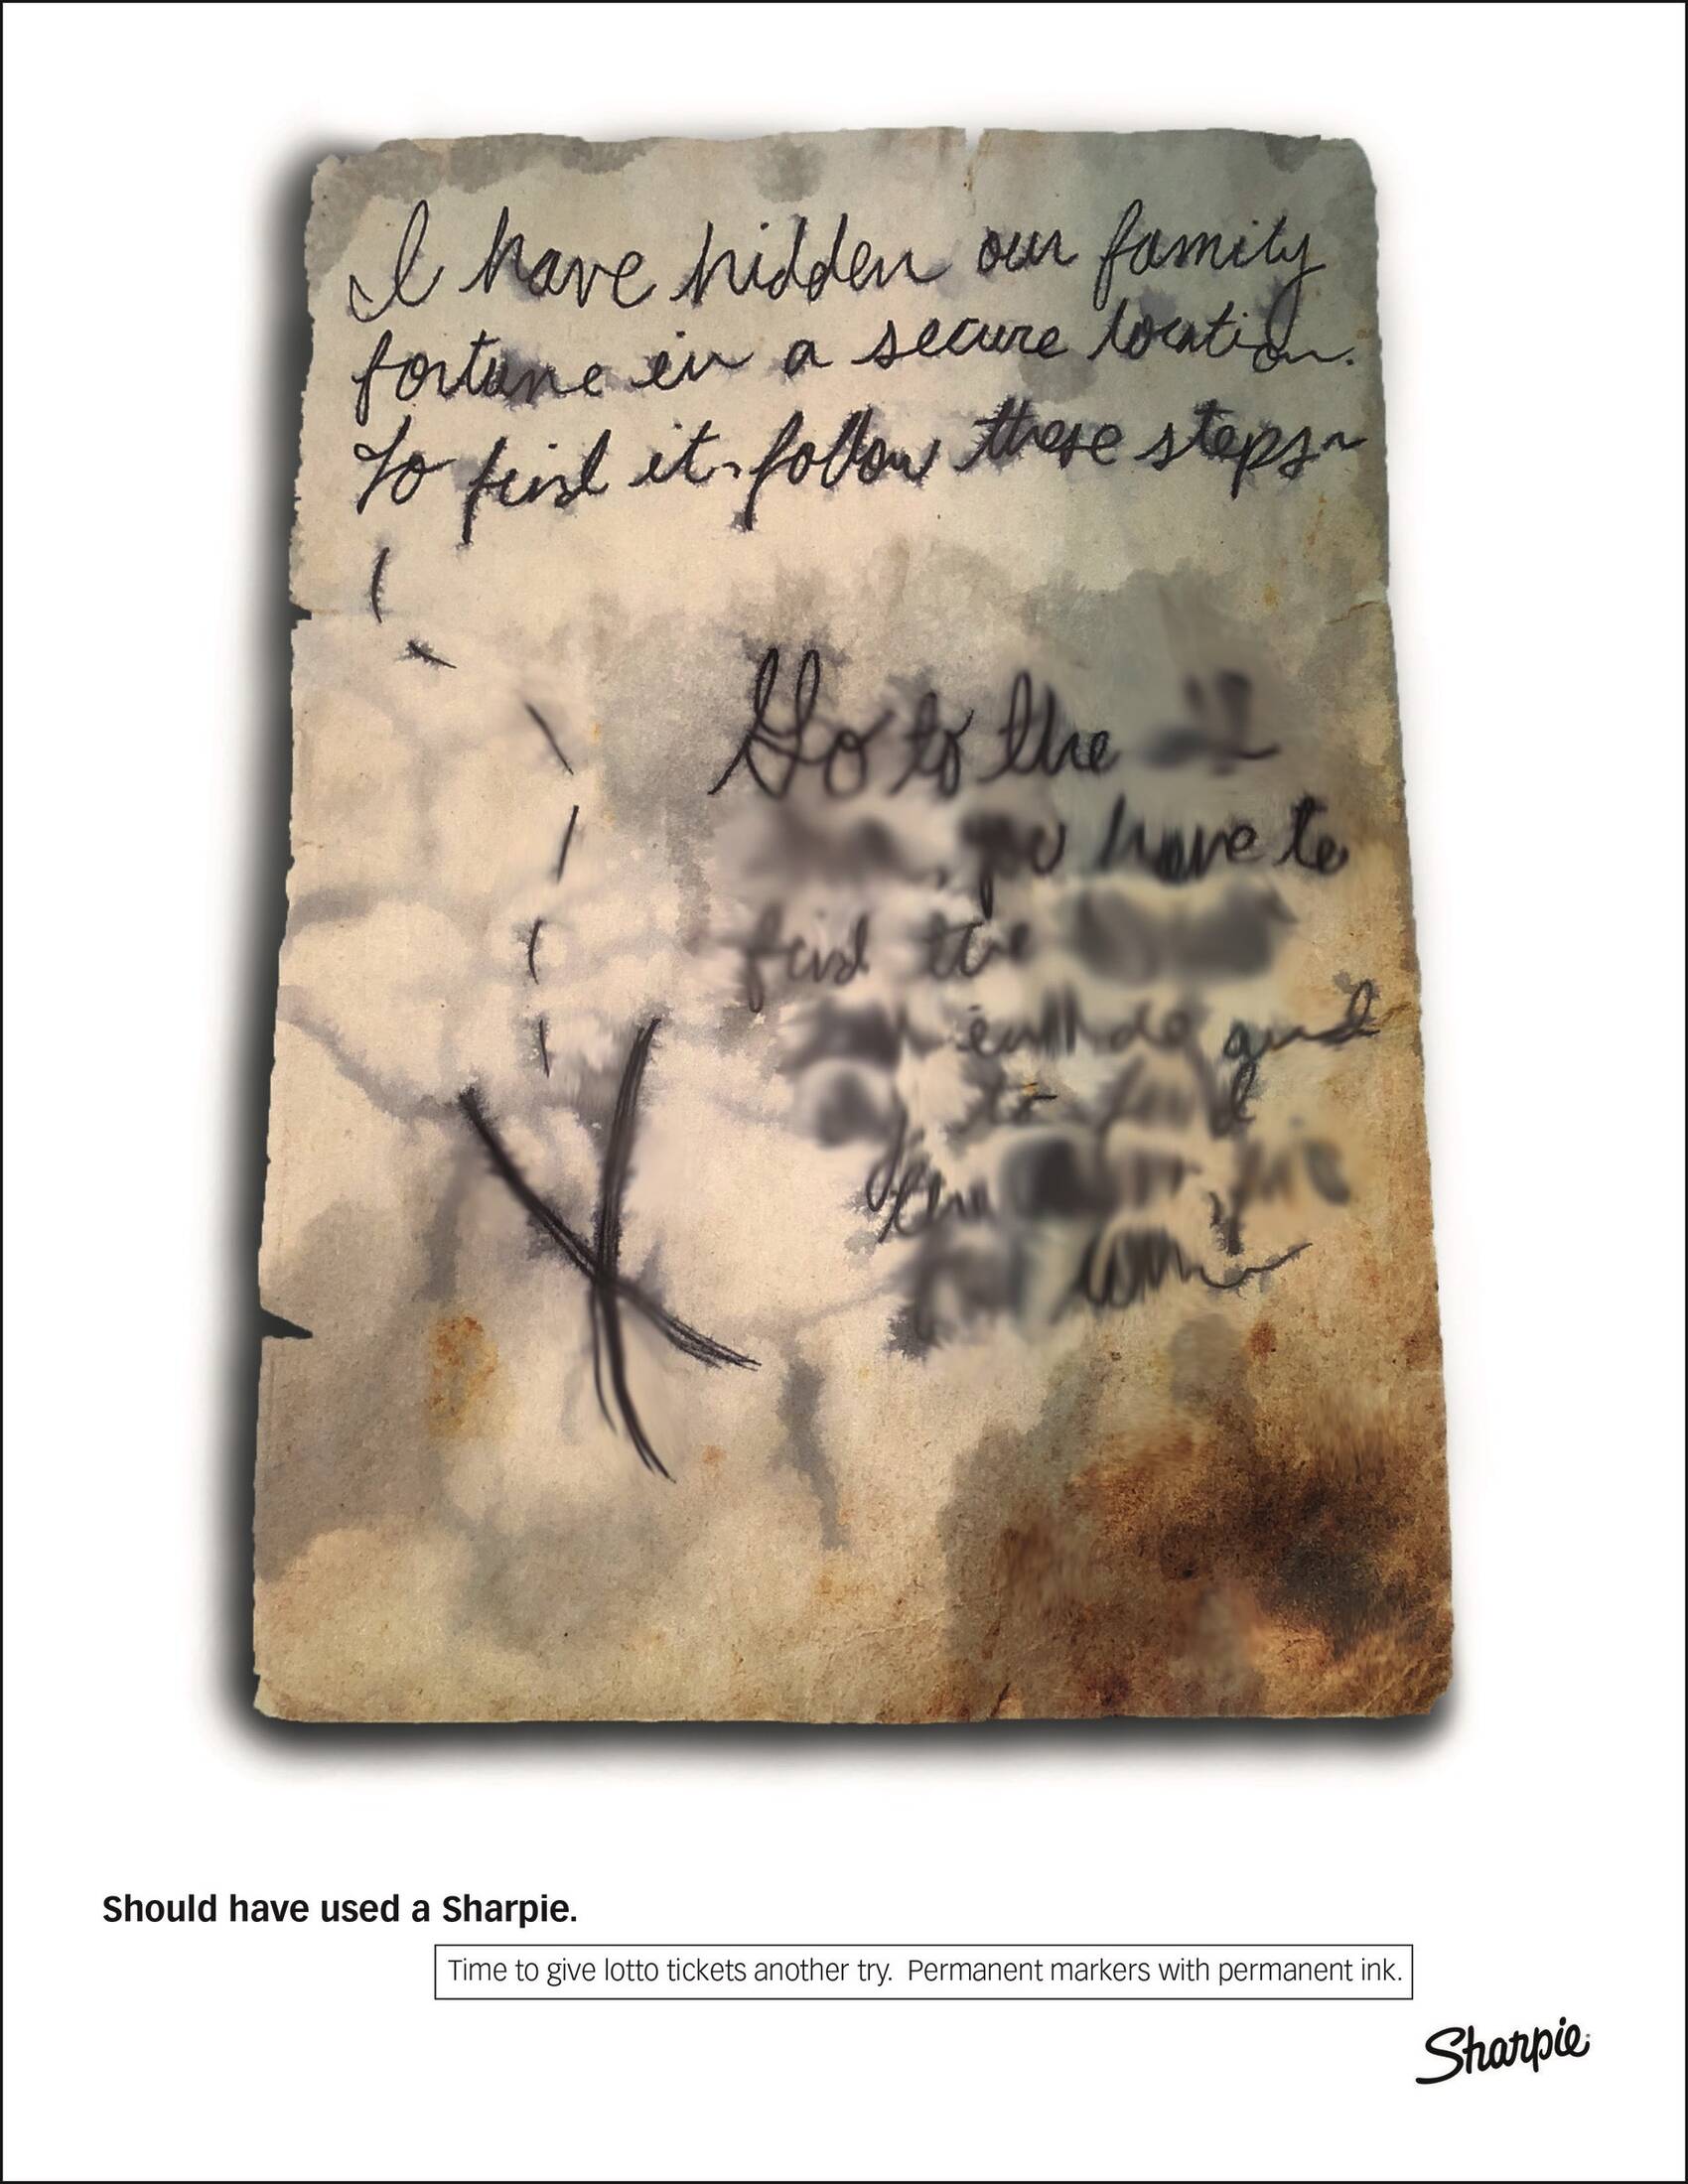 I have hidden our family
fortune in a secure location.
To find it, follow these steps~
Go to the
you have to
find the
and
to find
the
Should have used a Sharpie.
Time to give lotto tickets another try. Permanent markers with permanent ink.
Sharpie